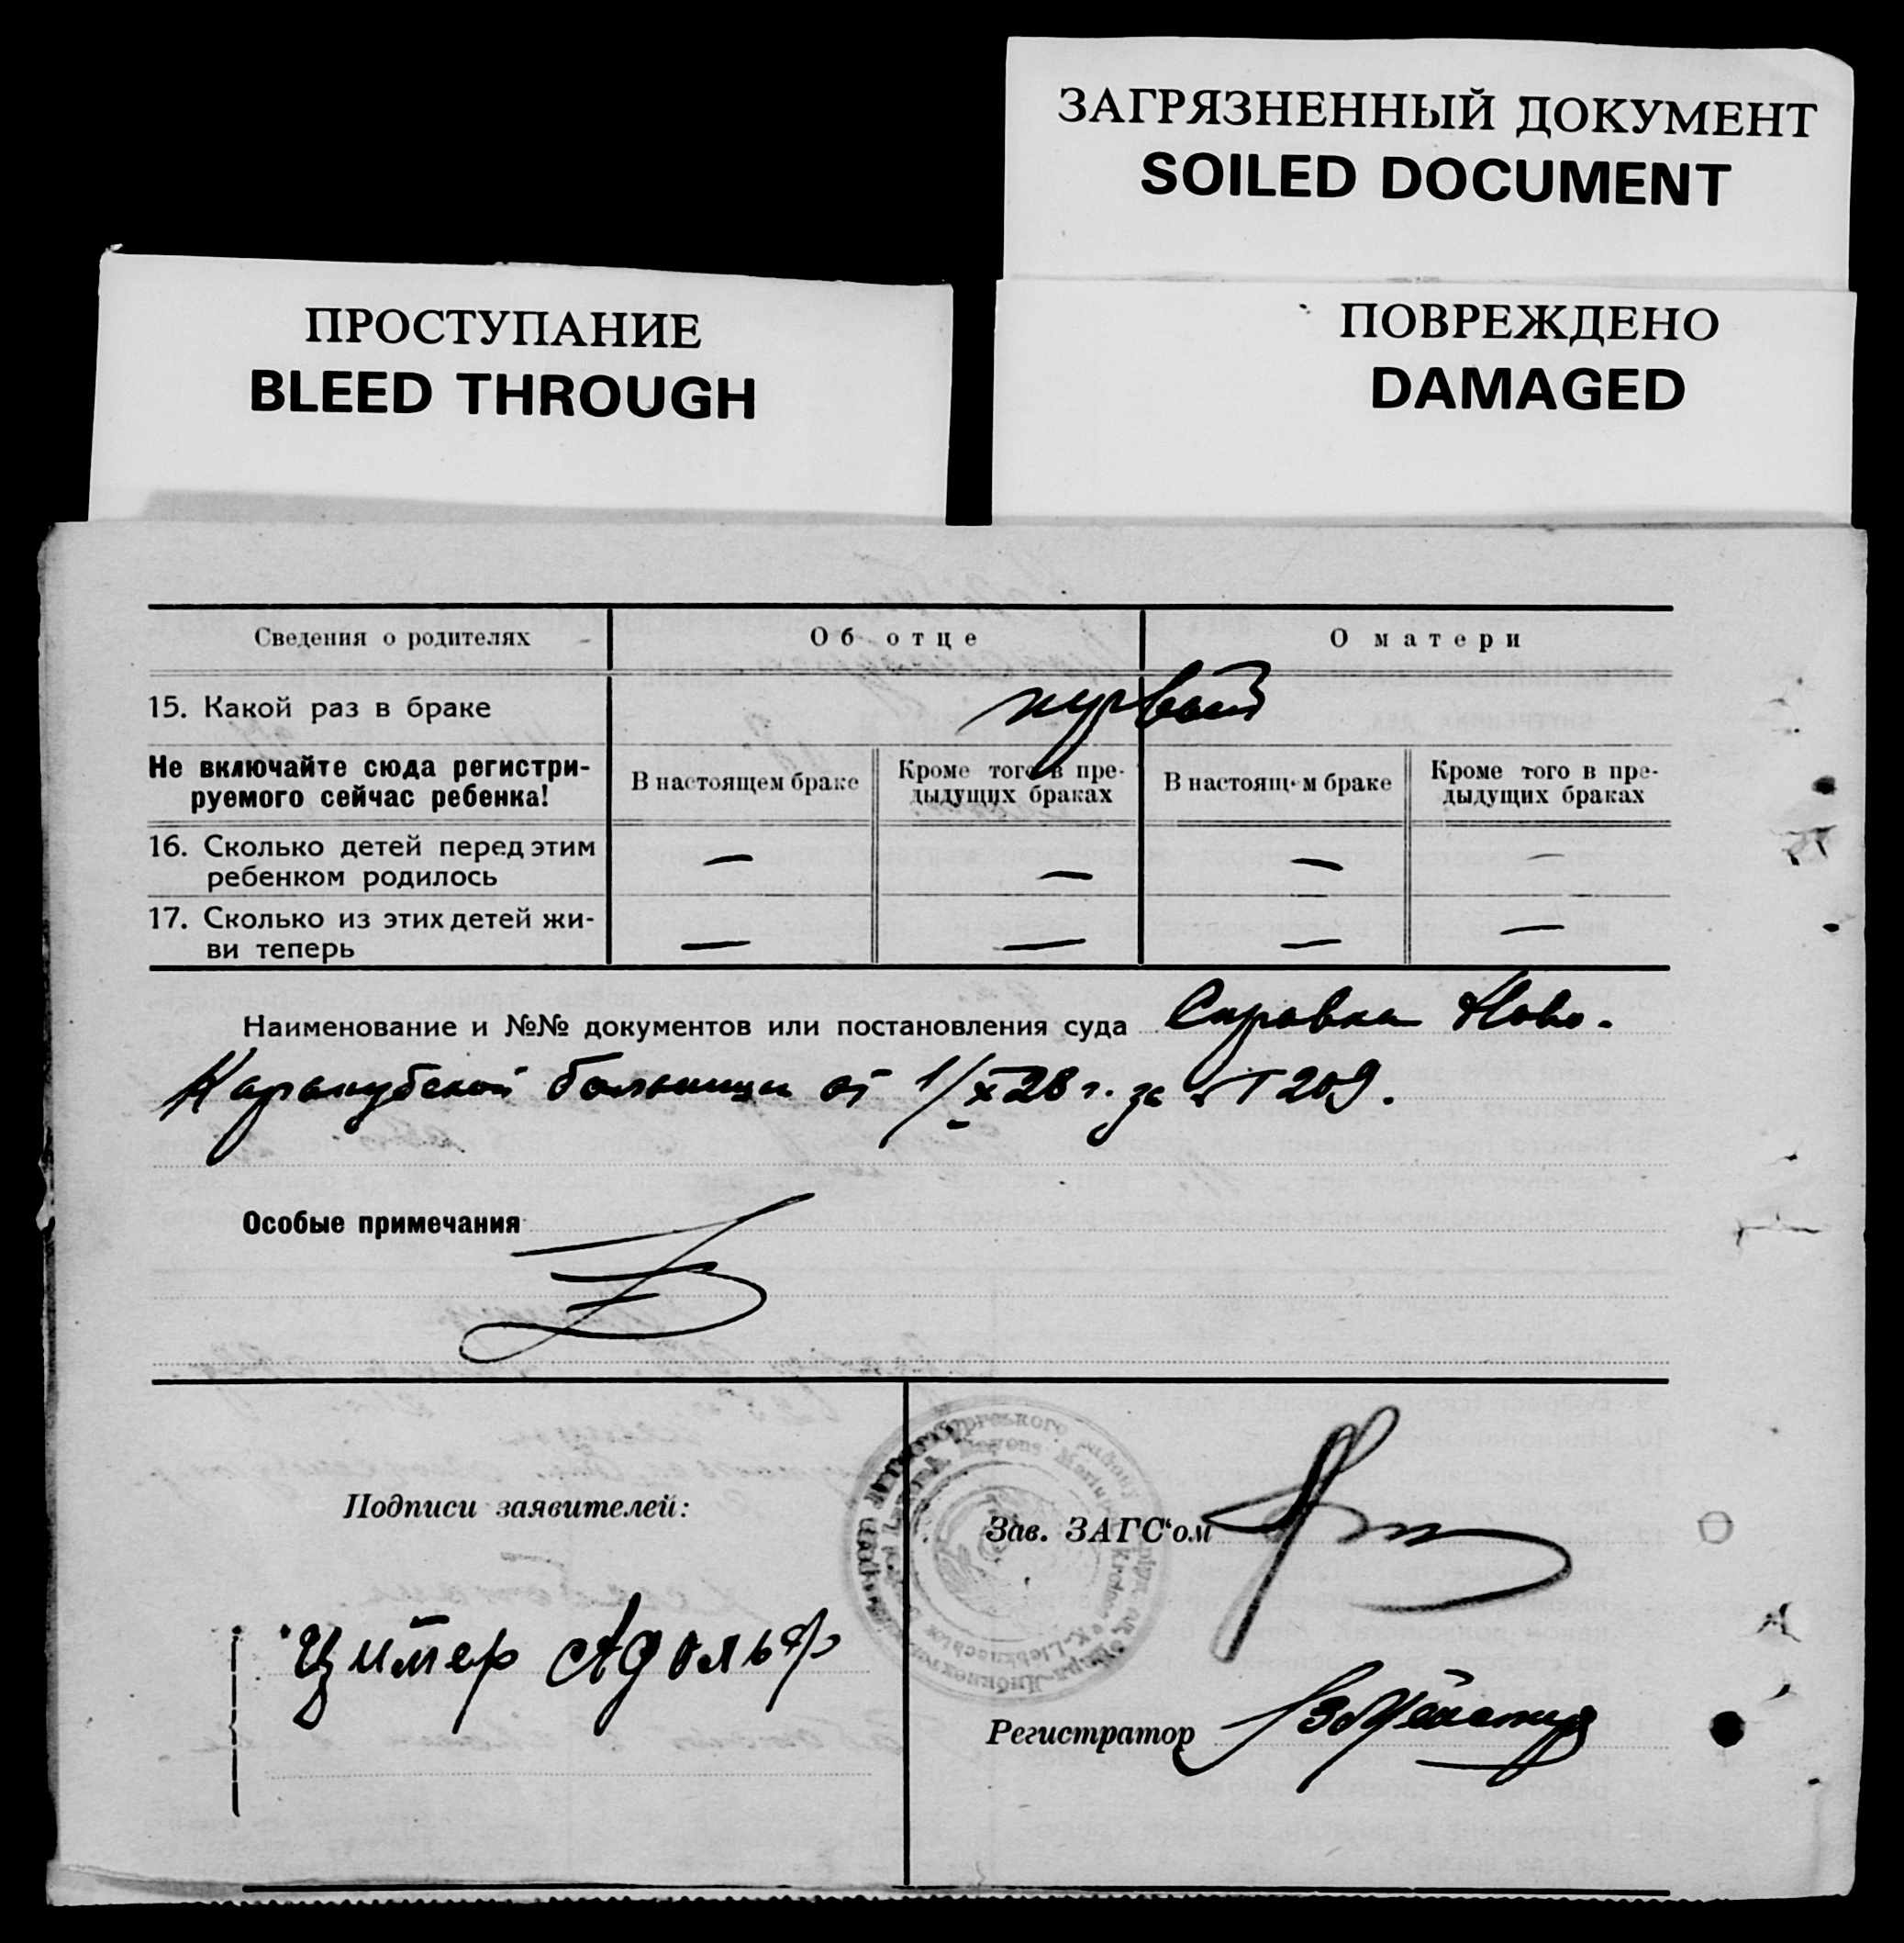 ЗАГРЯЗНЕННЫЙ ДОКУМЕНТ
SOILED DOCUMENT
ПРОСТУПАНИЕ
BLEED THROUGH
ПОВРЕЖДЕНО
DAMAGED
Сведения о родителях Об отце О матери
15. Какой раз в браке первый
Не включайте сюда регистри-
руемого сейчас ребенка!
В настоящем браке
Кроме того в пре-
дыдущих браках
В настоящем браке
Кроме того в пре-
дыдущих браках
16. Сколько детей перед этим
ребенком родилось — — — —
17. Сколько из этих детей жи-
ви теперь — — — —
Наименование и №№ документов или постановления суда Справка Ново-
Каракубской больницы от 1/X 28 г. за №209.
Особые примечания
Подписи заявителей:
Цимер Адольф
Зав. ЗАГС‘ом
Регистратор